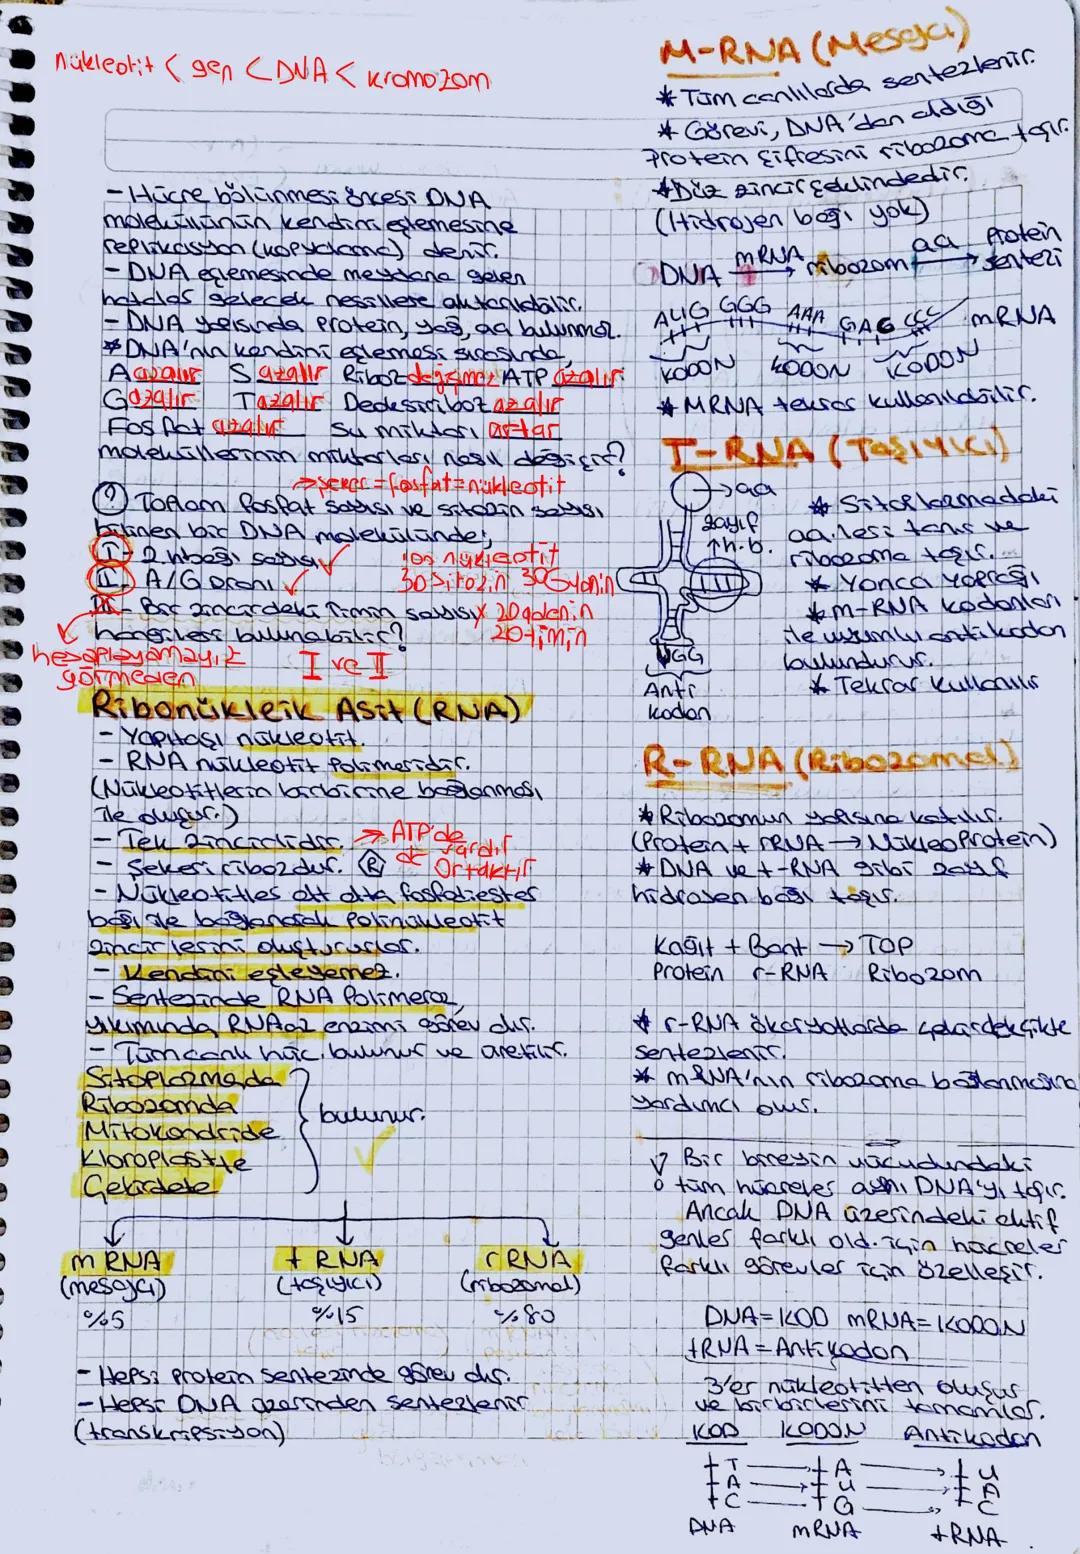 nükleotit < gen < DNA < kromozom
- Hücre bölünmesi öncesi DNA
molekülünün kendini eşlemesine
replikasyon (kopyalama) denir.
- DNA eşlemesinde meydana gelen
hatalar gelecek nesillere aktarılabilir.
- DNA yapısında protein, yağ, aa bulunmaz.
* DNA'nın kendini eşlemesi sırasında,
A azalır S azalır Riboz değişmez ATP azalır
G azalır T azalır Deoksiriboz azalır
Fosfat azalır Su miktarı artar
moleküllerinin miktarları nasıl değişir?
→ şeker = fosfat = nükleotit
? Toplam fosfat sayısı ve sitozin sayısı
bilinen bir DNA molekülünde;
I- 2.h bağı sayısı ✓ 100 nükleotit
II- A/G oranı ✓ 30 sitozin 30 Guanin
III- Bir zincirdeki timin sayısı x 20 adenin
hangileri bulunabilir? 20 timin
hesaplayamayız I ve II
görmeden
Ribonükleik Asit (RNA)
- Yapıtaşı nükleotit.
- RNA nükleotit polimeridir.
(Nükleotitlerin birbirine bağlanması
ile oluşur.)
- Tek zincirlidir. → ATP'de
- Şekeri ribozdur. R de vardır
Ortaktır
- Nükleotitler alt alta fosfodiester
bağı ile bağlanarak polinükleotit
zincirlerini oluştururlar.
- Kendini eşleyemez.
- Sentezinde RNA Polimeraz,
yıkımında RNAaz enzimi görev alır.
- Tüm canlı hüc. bulunur ve üretilir.
Sitoplazmada
Ribozomda
Mitokondride
Kloroplastte
Çekirdekte
bulunur.
mRNA tRNA rRNA
(mesajcı) (taşıyıcı) (ribozomal)
%5 %15 %80
- Hepsi protein sentezinde görev alır.
- Hepsi DNA üzerinden sentezlenir
(transkripsiyon)
M-RNA (Mesajcı)
* Tüm canlılarda sentezlenir.
* Görevi, DNA'dan aldığı
protein şifresini ribozoma taşır.
* Düz zincir şeklindedir.
(Hidrojen bağı yok)
DNA mRNA→ ribozom aa→ Protein sentezi
AUG GGG AAA GAG CCC mRNA
KODON KODON KODON
* MRNA tekrar kullanılabilir.
T-RNA (Taşıyıcı)
→ aa
zayıf
↑h.b.
UGG
Anti
kodon
* Sitoplazmadaki
aa.leri tanır ve
ribozoma taşır.
* Yonca yaprağı
* m-RNA kodonları
ile uyumlu antikodon
bulundurur.
* Tekrar kullanılır
R-RNA (Ribozomal)
* Ribozomun yapısına katılır.
(Protein + rRNA → NükleoProtein)
* DNA ve t-RNA gibi zayıf
hidrojen bağı taşır.
Kağıt + Bant → TOP
Protein r-RNA Ribozom
* r-RNA ökaryotlarda çekirdekçikte
sentezlenir.
* mRNA'nın ribozoma bağlanmasına
yardımcı olur.
Bir bireyin vücudundaki
tüm hücreler aynı DNA'yı taşır.
Ancak DNA üzerindeki aktif
genler farklı old. için hücreler
farklı görevler için özelleşir.
DNA=KOD mRNA=KODON
tRNA = Antikodon
3'er nükleotitten oluşur
ve birbirlerini tamamlar.
KOD KODON Antikodon
T → A → U
A → U → A
C → G → C
DNA mRNA tRNA